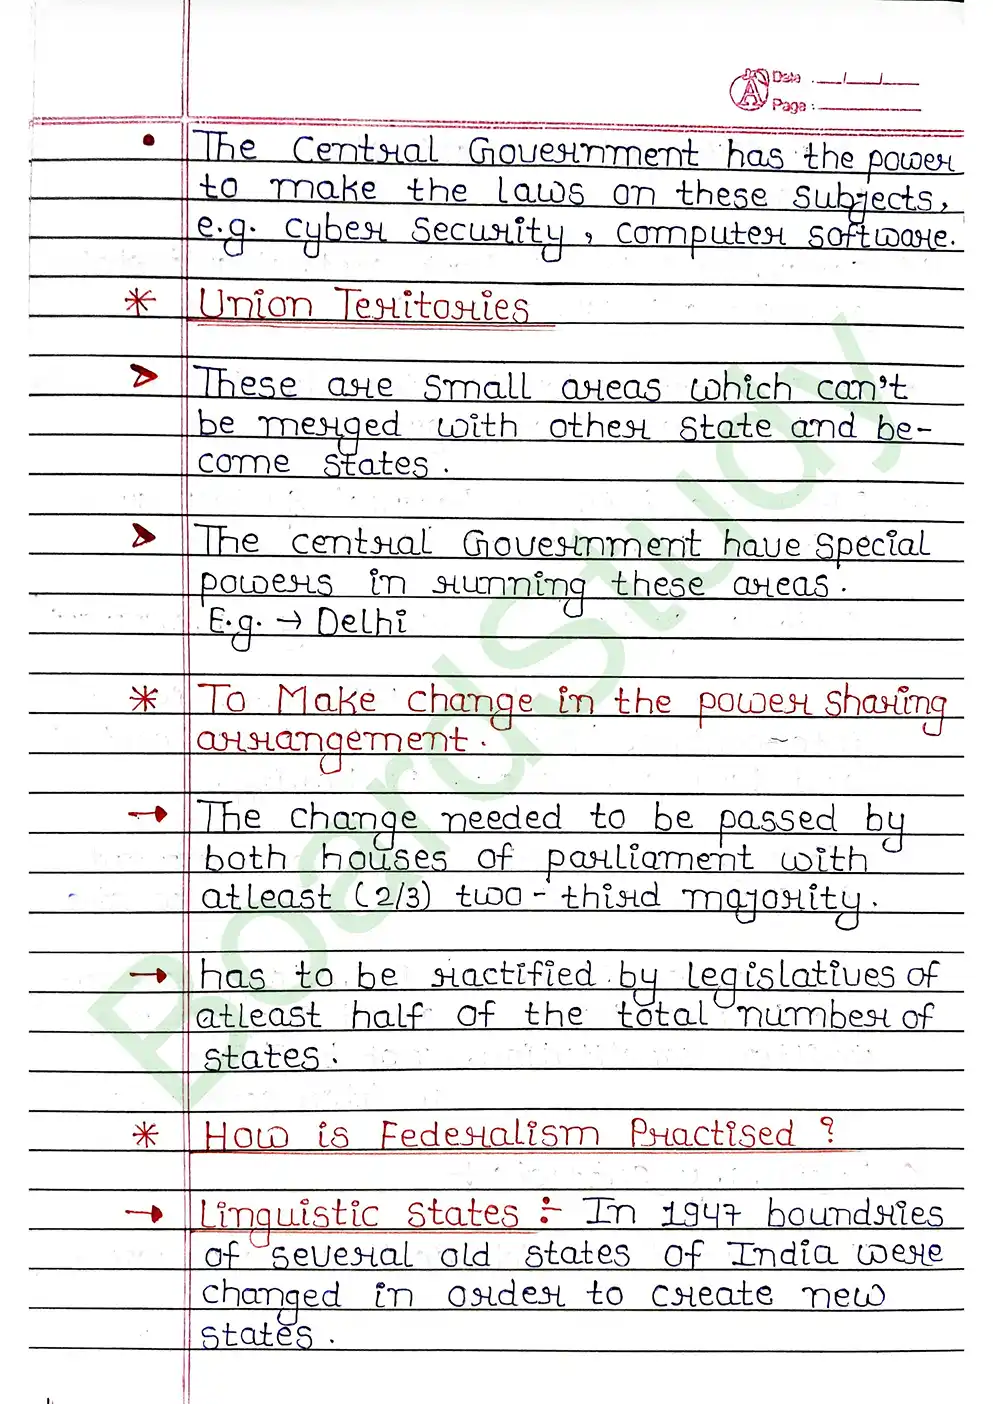 Date : __/__/__
Page : ________
• The Central Government has the power
to make the laws on these subjects,
e.g. cyber security, computer software.
* Union Teritories
> These are small areas which can't
be merged with other state and be-
come states.
> The central Government have special
powers in running these areas.
E.g. → Delhi
* To Make change in the power sharing
arrangement.
→ The change needed to be passed by
both houses of parliament with
atleast (2/3) two-third majority.
→ has to be ractified by legislatives of
atleast half of the total number of
states.
* How is Federalism Practised ?
→ Linguistic states :- In 1947 boundries
of several old states of India were
changed in order to create new
states.
BoardStudy